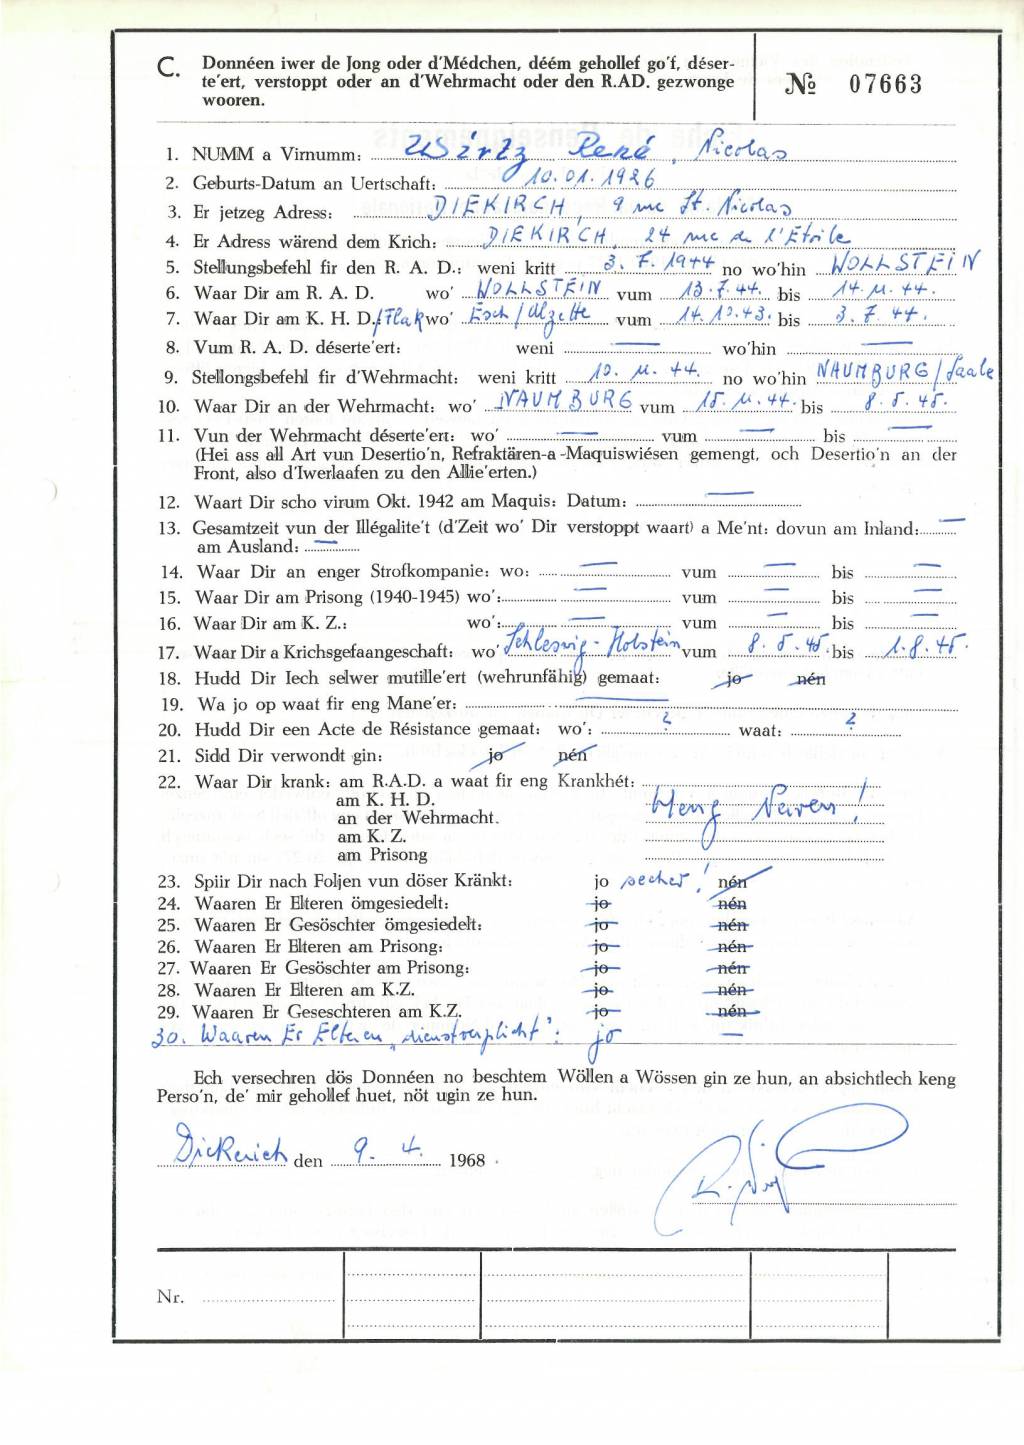 C. Donnéen iwer de Jong oder d'Médchen, déém gehollef go'f, déser-
te'ert, verstoppt oder an d'Wehrmacht oder den R.AD. gezwonge
wooren.
№ 07663
1. NUMM a Virnumm: Wirtz René, Nicolas
2. Geburts-Datum an Uertschaft: 10.01.1926
3. Er jetzeg Adress: DIEKIRCH, 9 rue St. Nicolas
4. Er Adress wärend dem Krich: DIEKIRCH, 24 rue de l'Étoile
5. Stellungsbefehl fir den R. A. D.: weni kritt 3. 7. 1944 no wo'hin WOLLSTEIN
6. Waar Dir am R. A. D. wo' WOLLSTEIN vum 13.7.44. bis 14.11.44.
7. Waar Dir am K. H. D./Flak wo' Esch/Alzette vum 14.12.43. bis 3.7.44.
8. Vum R. A. D. déserte'ert: weni — wo'hin —
9. Stellongsbefehl fir d'Wehrmacht: weni kritt 10. 11. 44. no wo'hin NAUMBURG/Saale
10. Waar Dir an der Wehrmacht: wo' NAUMBURG vum 15.11.44. bis 8.5.45.
11. Vun der Wehrmacht déserte'ert: wo' — vum — bis —
(Hei ass all Art vun Desertio'n, Refraktären-a-Maquiswiésen gemengt, och Desertio'n an der
Front, also d'Iwerlaafen zu den Allie'erten.)
12. Waart Dir scho virum Okt. 1942 am Maquis: Datum: —
13. Gesamtzeit vun der Illégalite't (d'Zeit wo' Dir verstoppt waart) a Me'nt: dovun am Inland: —
am Ausland: —
14. Waar Dir an enger Strofkompanie: wo: — vum — bis —
15. Waar Dir am Prisong (1940-1945) wo': — vum — bis —
16. Waar Dir am K. Z.: wo': — vum — bis —
17. Waar Dir a Krichsgefaangeschaft: wo' Schleswig-Holstein vum 8.5.45. bis 1.8.45.
18. Hudd Dir Iech selwer mutille'ert (wehrunfähig) gemaat: jo nén
19. Wa jo op waat fir eng Mane'er: —
20. Hudd Dir een Acte de Résistance gemaat: wo': ? waat: ?
21. Sidd Dir verwondt gin: jo nén
22. Waar Dir krank: am R.A.D. a waat fir eng Krankhét:
am K. H. D.
an der Wehrmacht. Meng Nerven!
am K. Z.
am Prisong
23. Spiir Dir nach Foljen vun döser Kränkt: jo secher! nén
24. Waaren Er Elteren ömgesiedelt: jo nén
25. Waaren Er Gesöschter ömgesiedelt: jo nén
26. Waaren Er Elteren am Prisong: jo nén
27. Waaren Er Gesöschter am Prisong: jo nén
28. Waaren Er Elteren am K.Z. jo nén
29. Waaren Er Geseschteren am K.Z. jo nén
30. Waaren Er Elteren „dienstverplicht": jo —
Ech versechren dös Donnéen no beschtem Wöllen a Wössen gin ze hun, an absichtlech keng
Perso'n, de' mir gehollef huet, nöt ugin ze hun.
Dickerich den 9. 4. 1968
Nr.